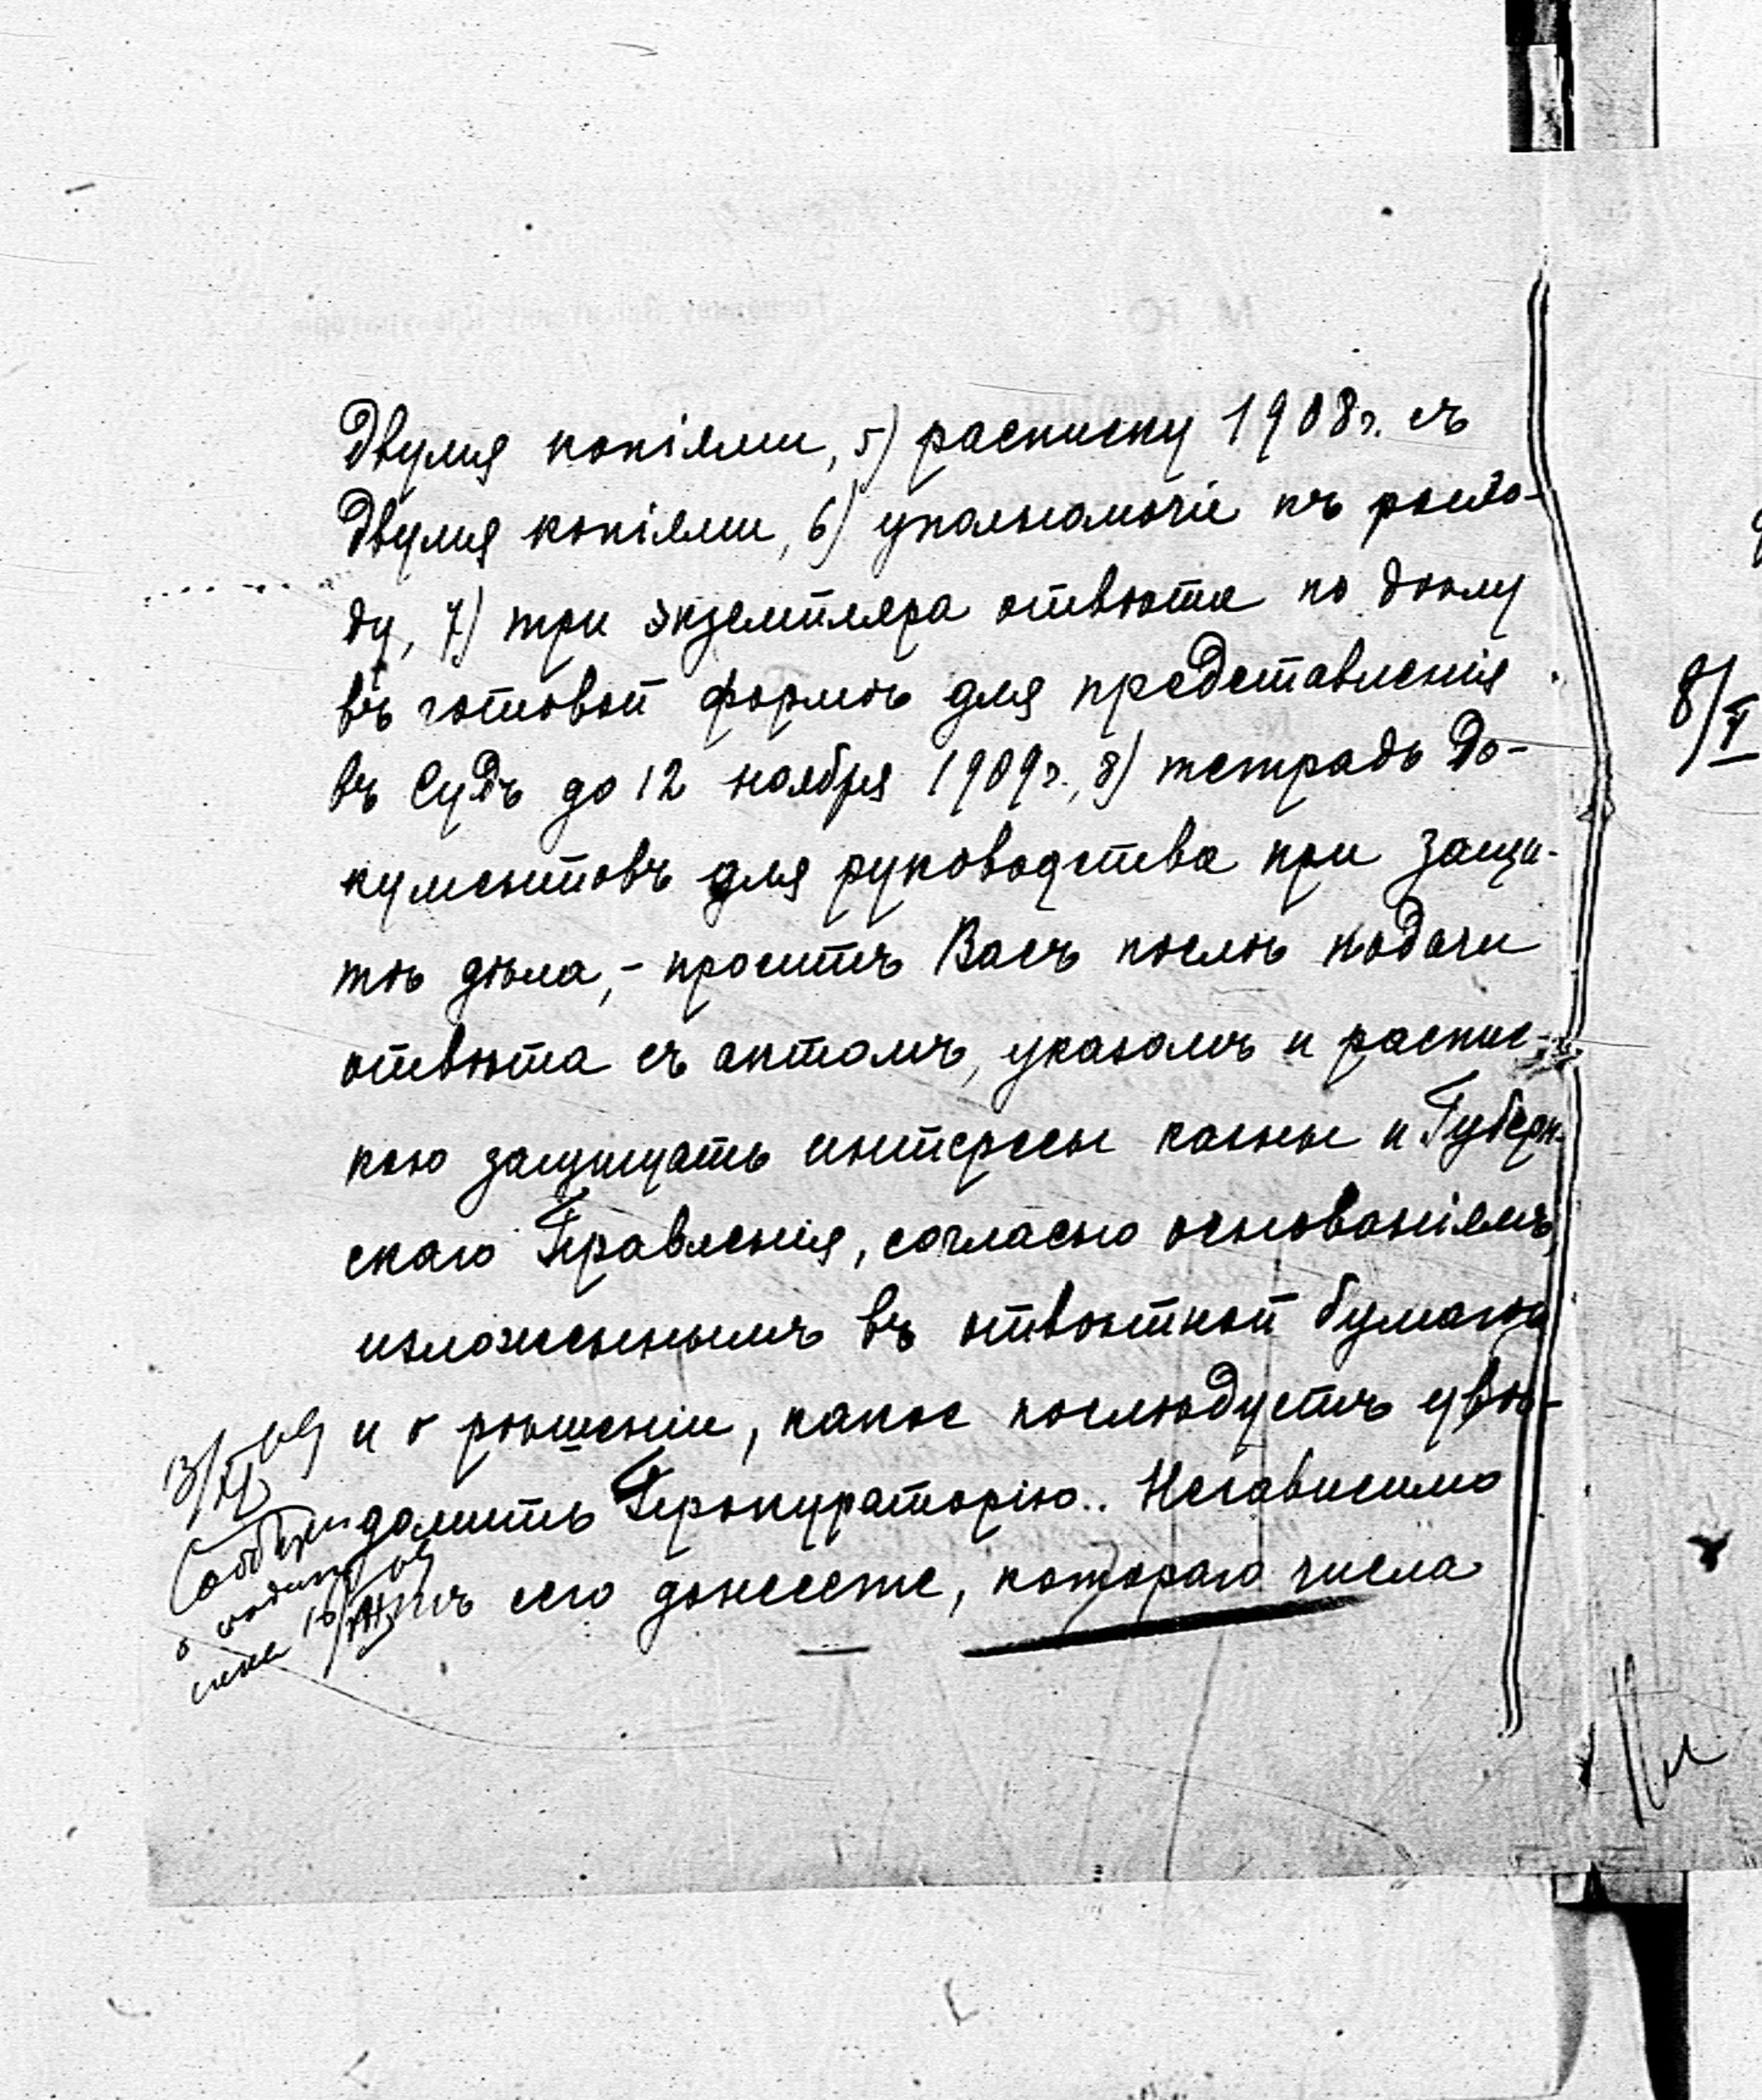 двумя копіями, 5) расписку 1908 г. съ
двумя копіями, 6) уполномочіе къ
ду, 7) три экземпляра отвѣта по дѣлу
въ готовой формѣ для представленія
въ Судъ до 12 ноября 1909 г., 8) тетрадь до-
кументовъ для руководства при защи-
тѣ дѣла, - проситъ Васъ послѣ подачи
отвѣта съ актомъ, указомъ и распис-
кою защищать интересы казны и Губерн-
скаго Правленія, согласно основаніямъ,
изложеннымъ въ отвѣтной бумагѣ
и о рѣшеніи, какое послѣдуетъ увѣ-
домить Прокураторію.. Независимо
сего донесете, котораго числа
13/XI 09
8/V